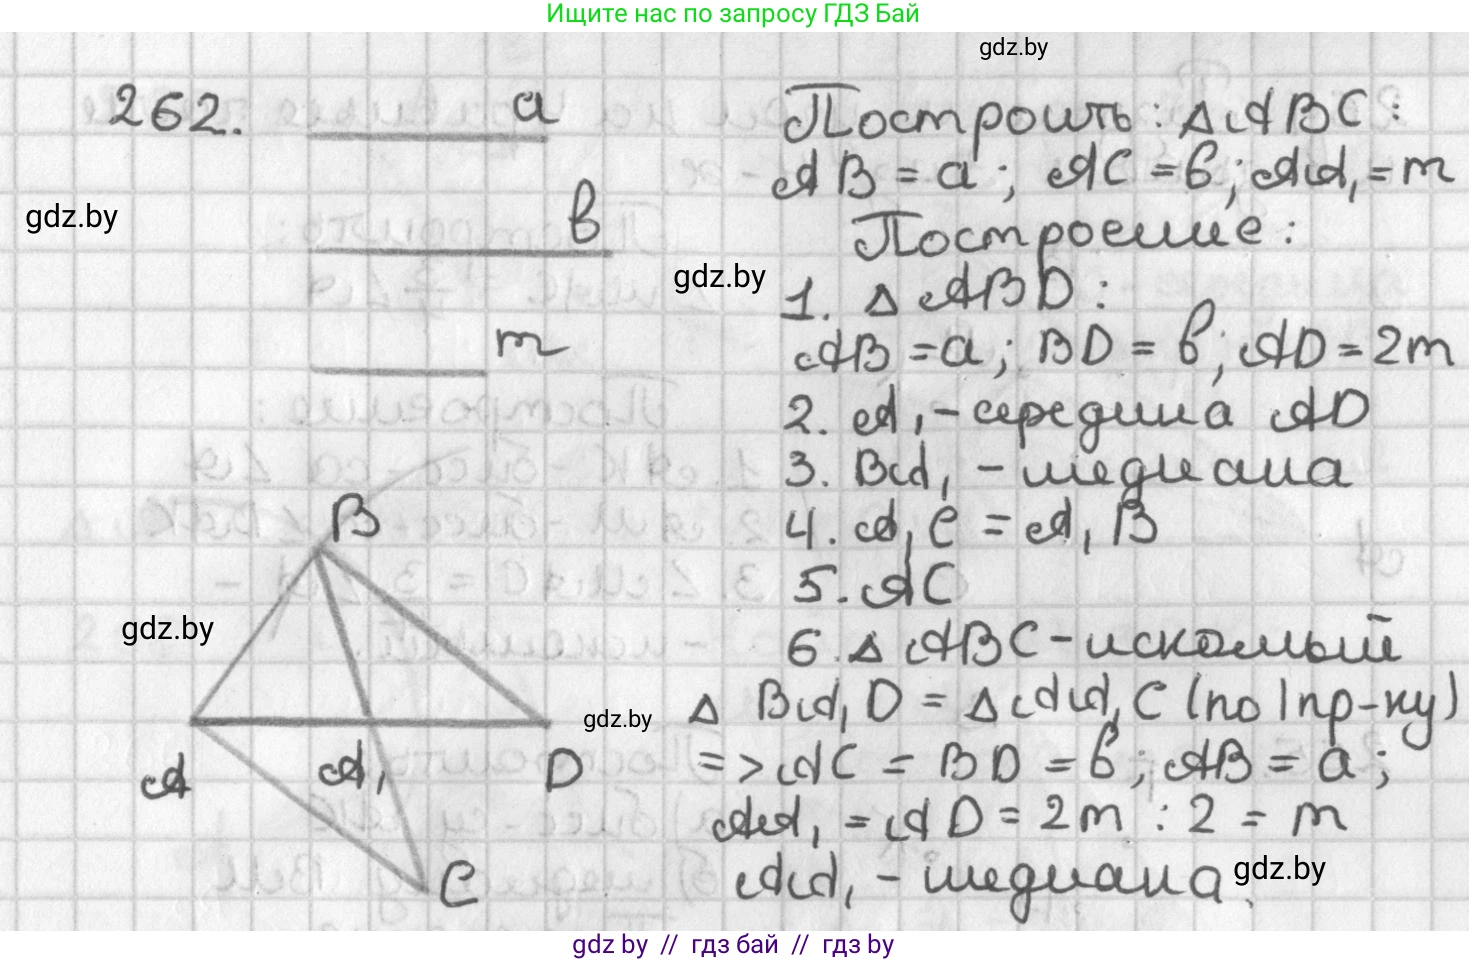 Ищите нас по запросу ГДЗ Бай
gdz.by
262.
a
в
m
gdz.by
gdz.by
Построить: △ABC:
AB = a; AC = в; AA₁ = m
Построение:
1. △ABD:
AB = a; BD = в; AD = 2m
2. A₁ - середина AD
3. BA₁ - медиана
4. A₁C = A₁B
5. AC
6. △ABC - искомый
△ BA₁D = △AA₁C (по I пр-ку)
=> AC = BD = в; AB = a;
AA₁ = AD = 2m : 2 = m
AA₁ - медиана.
B
gdz.by
A
A₁
D
C
gdz.by
gdz.by
gdz by // гдз бай // гдз by